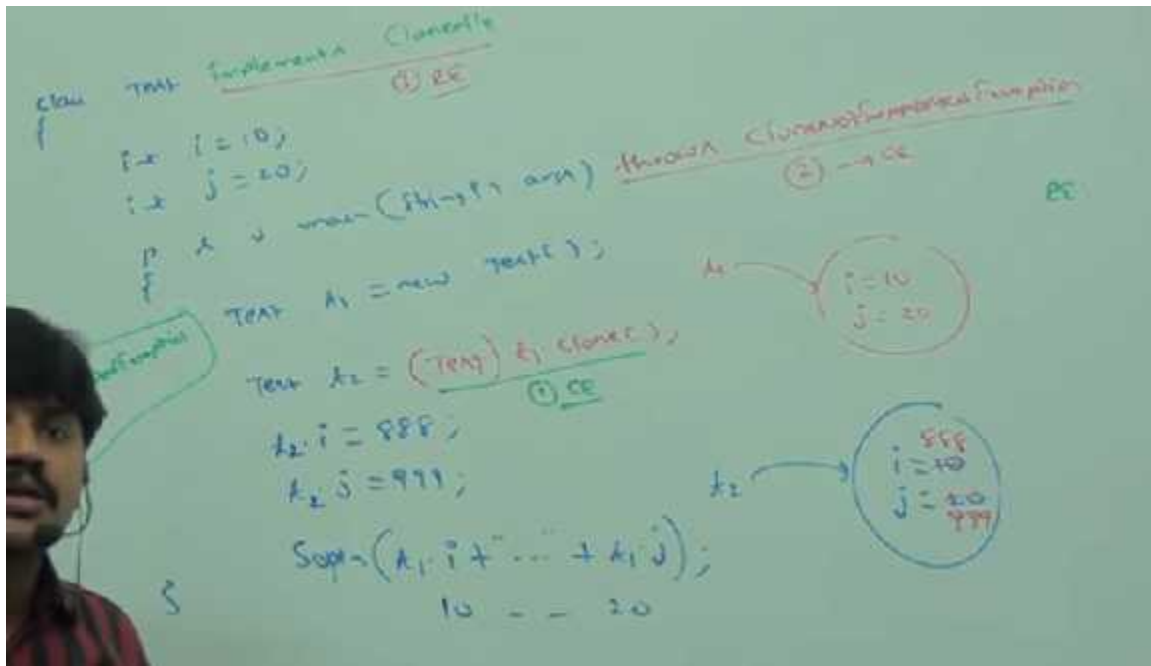 class Test implements Cloneable
① RE
{
int i = 10;
int j = 20;
p s v main(String[] args) throws CloneNotSupportedException
② → CE
RE:
{
Test t1 = new Test();
Test t2 = (Test) t1.clone();
① CE
t2.i = 888;
t2.j = 999;
Sopln(t1.i + "..." + t1.j);
10 - - 20
}
t1
i = 10
j = 20
t2
888
i = 10
j = 20
999